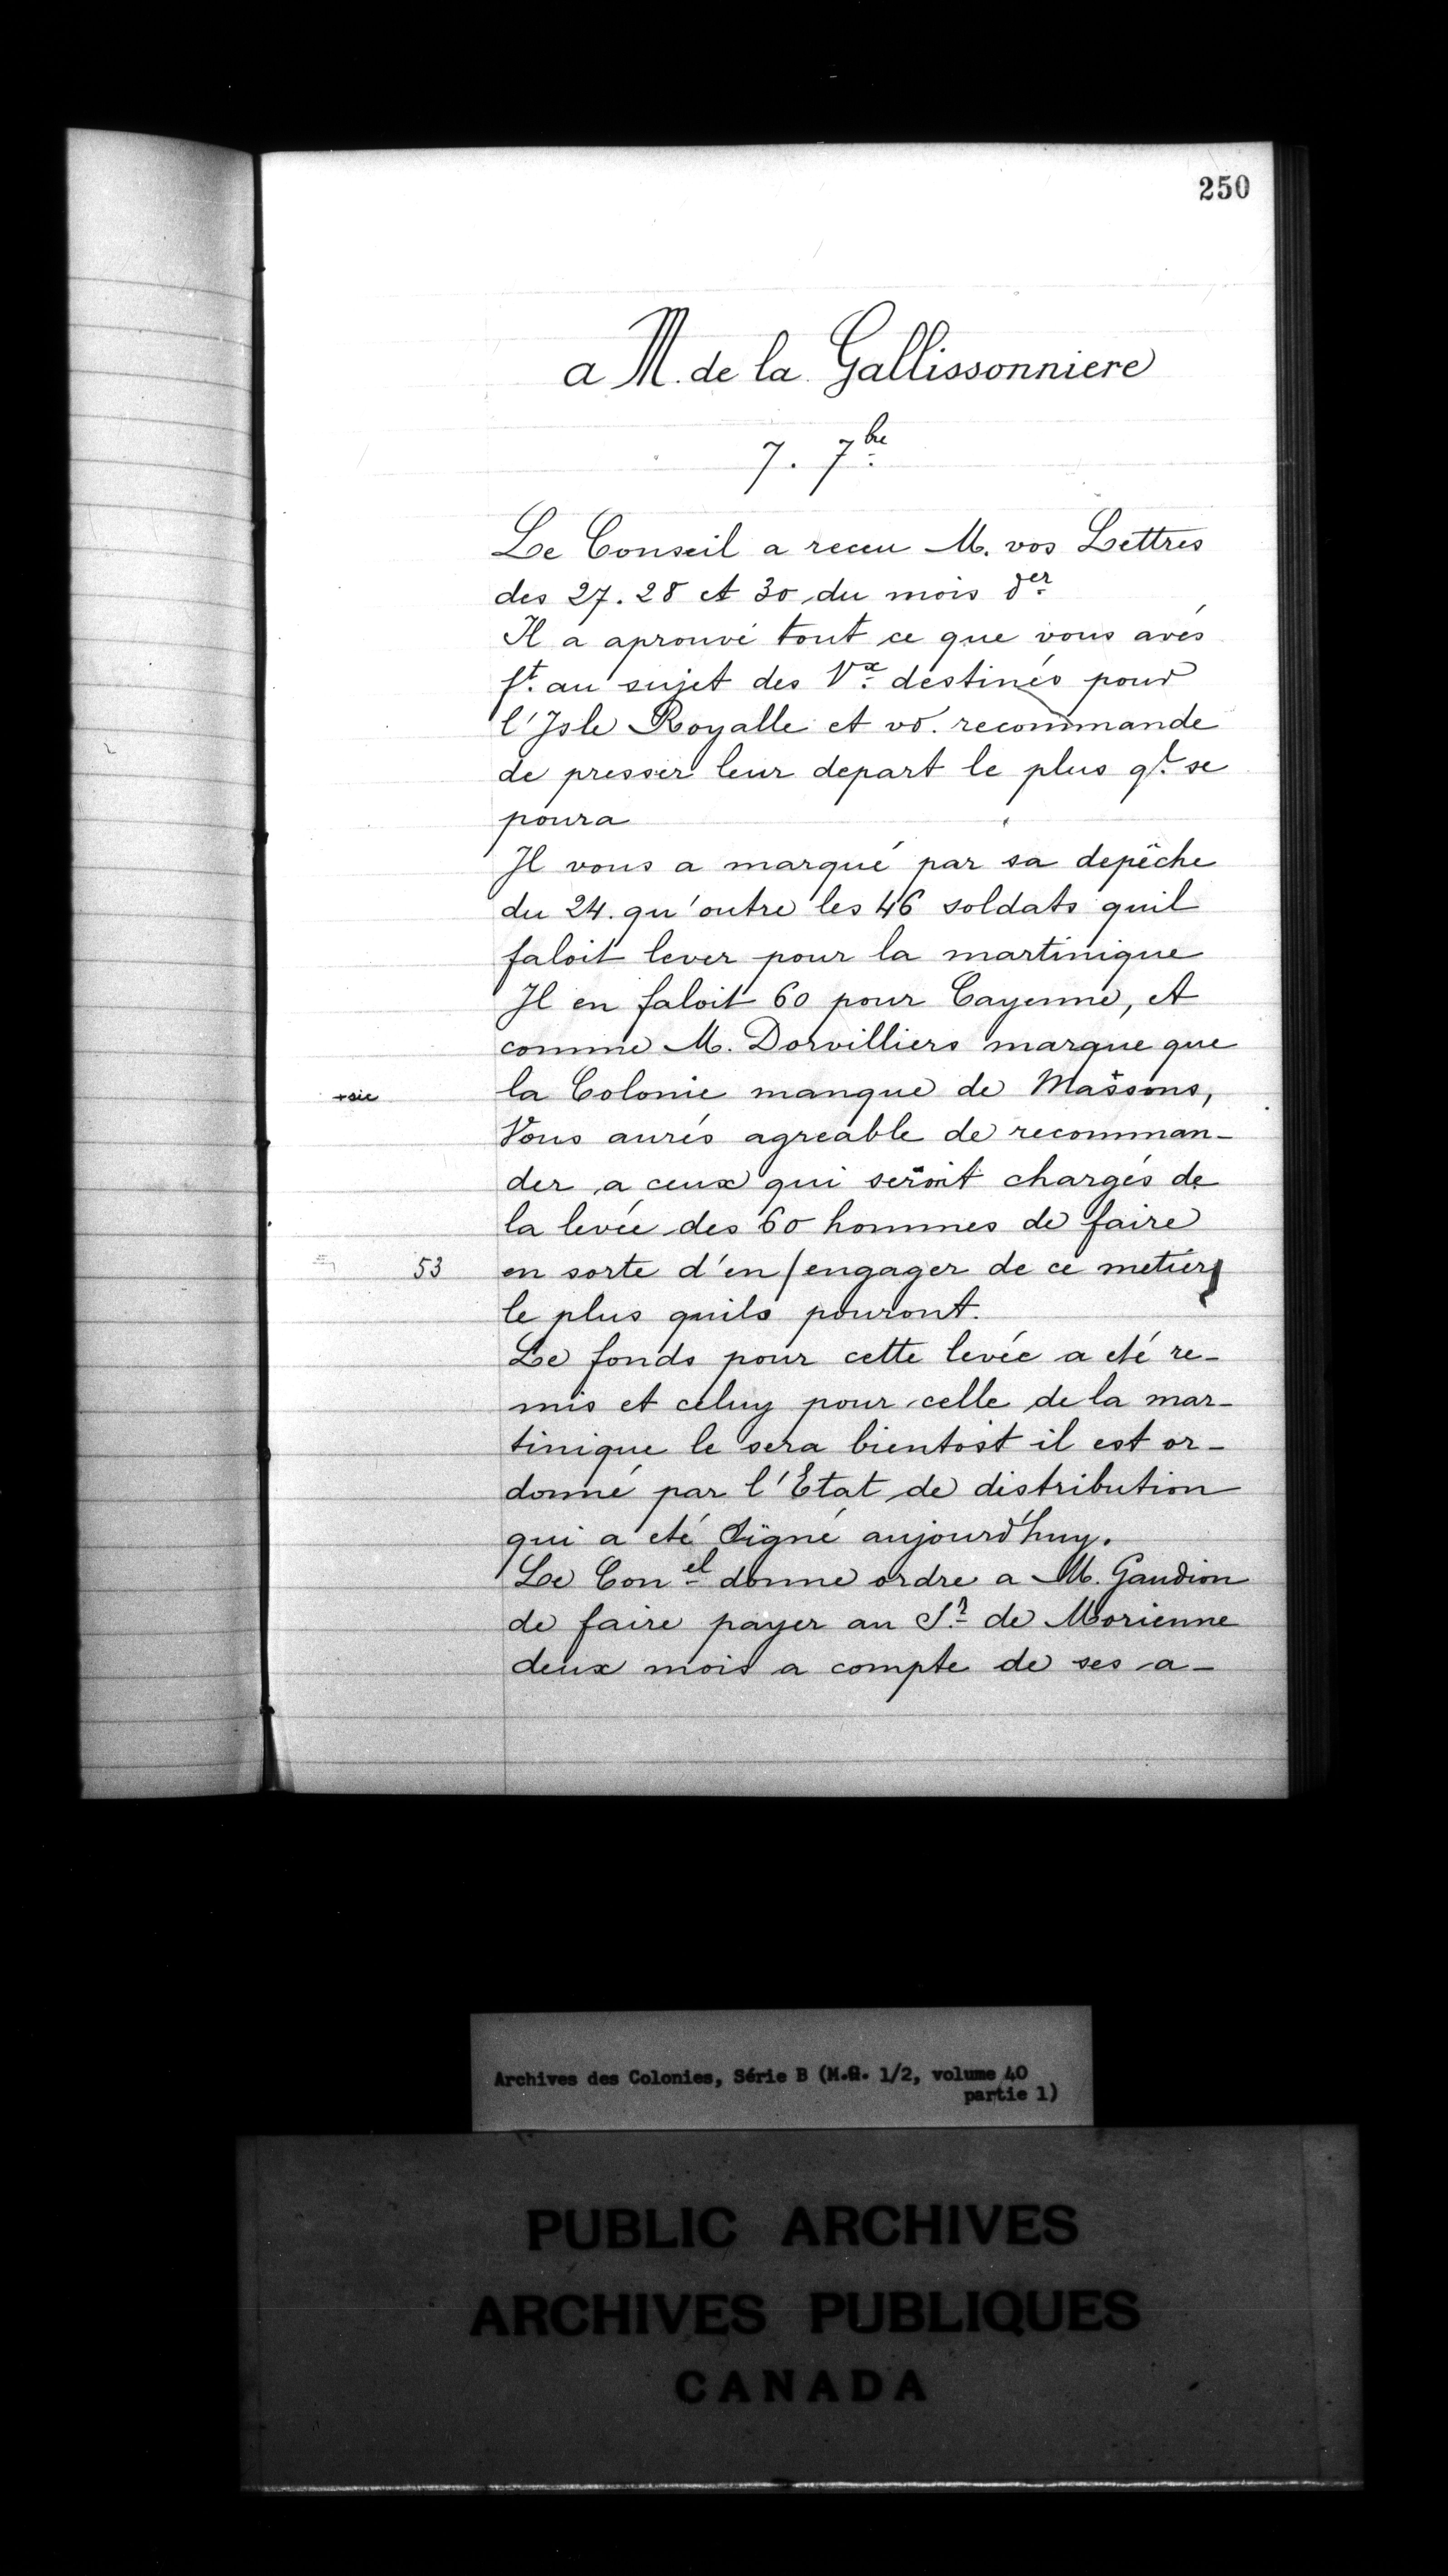 250
a M. de la Gallissonniere
7. 7bre
Le Conseil a receu M. vos Lettres
des 27. 28 et 30 du mois der
Il a aprouvé tout ce que vous avés
ft. au sujet des Vx destinés pour
l'Isle Royalle et vo. recommande
de presser leur depart le plus ql. se
poura
Il vous a marqué par sa depêche
du 24. qu'outre les 46 soldats quil
faloit lever pour la martinique
Il en faloit 60 pour Cayenne, et
comme M. Dorvilliers marque que
+sic la Colonie manque de Massons,
Vous aurés agreable de recomman-
der a ceux qui seroit chargés de
la levée des 60 hommes de faire
53 en sorte d'en/engager de ce metier
le plus quils pouront.
Le fonds pour cette levée a eté re-
mis et celuy pour celle de la mar-
tinique le sera bientost il est or-
donné par l'Etat de distribution
qui a eté signé aujourd'huy.
Le Conel donne ordre a M. Gaudion
de faire payer au Sr de Morienne
deux mois a compte de ses a-
Archives des Colonies, Série B (M.G. 1/2, volume 40
partie 1)
PUBLIC ARCHIVES
ARCHIVES PUBLIQUES
CANADA